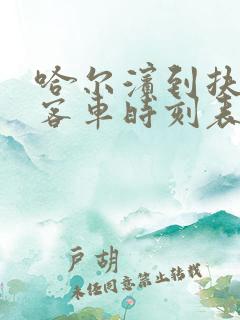 哈尔滨到扶
客车时刻表
户胡
未经同意禁止转载